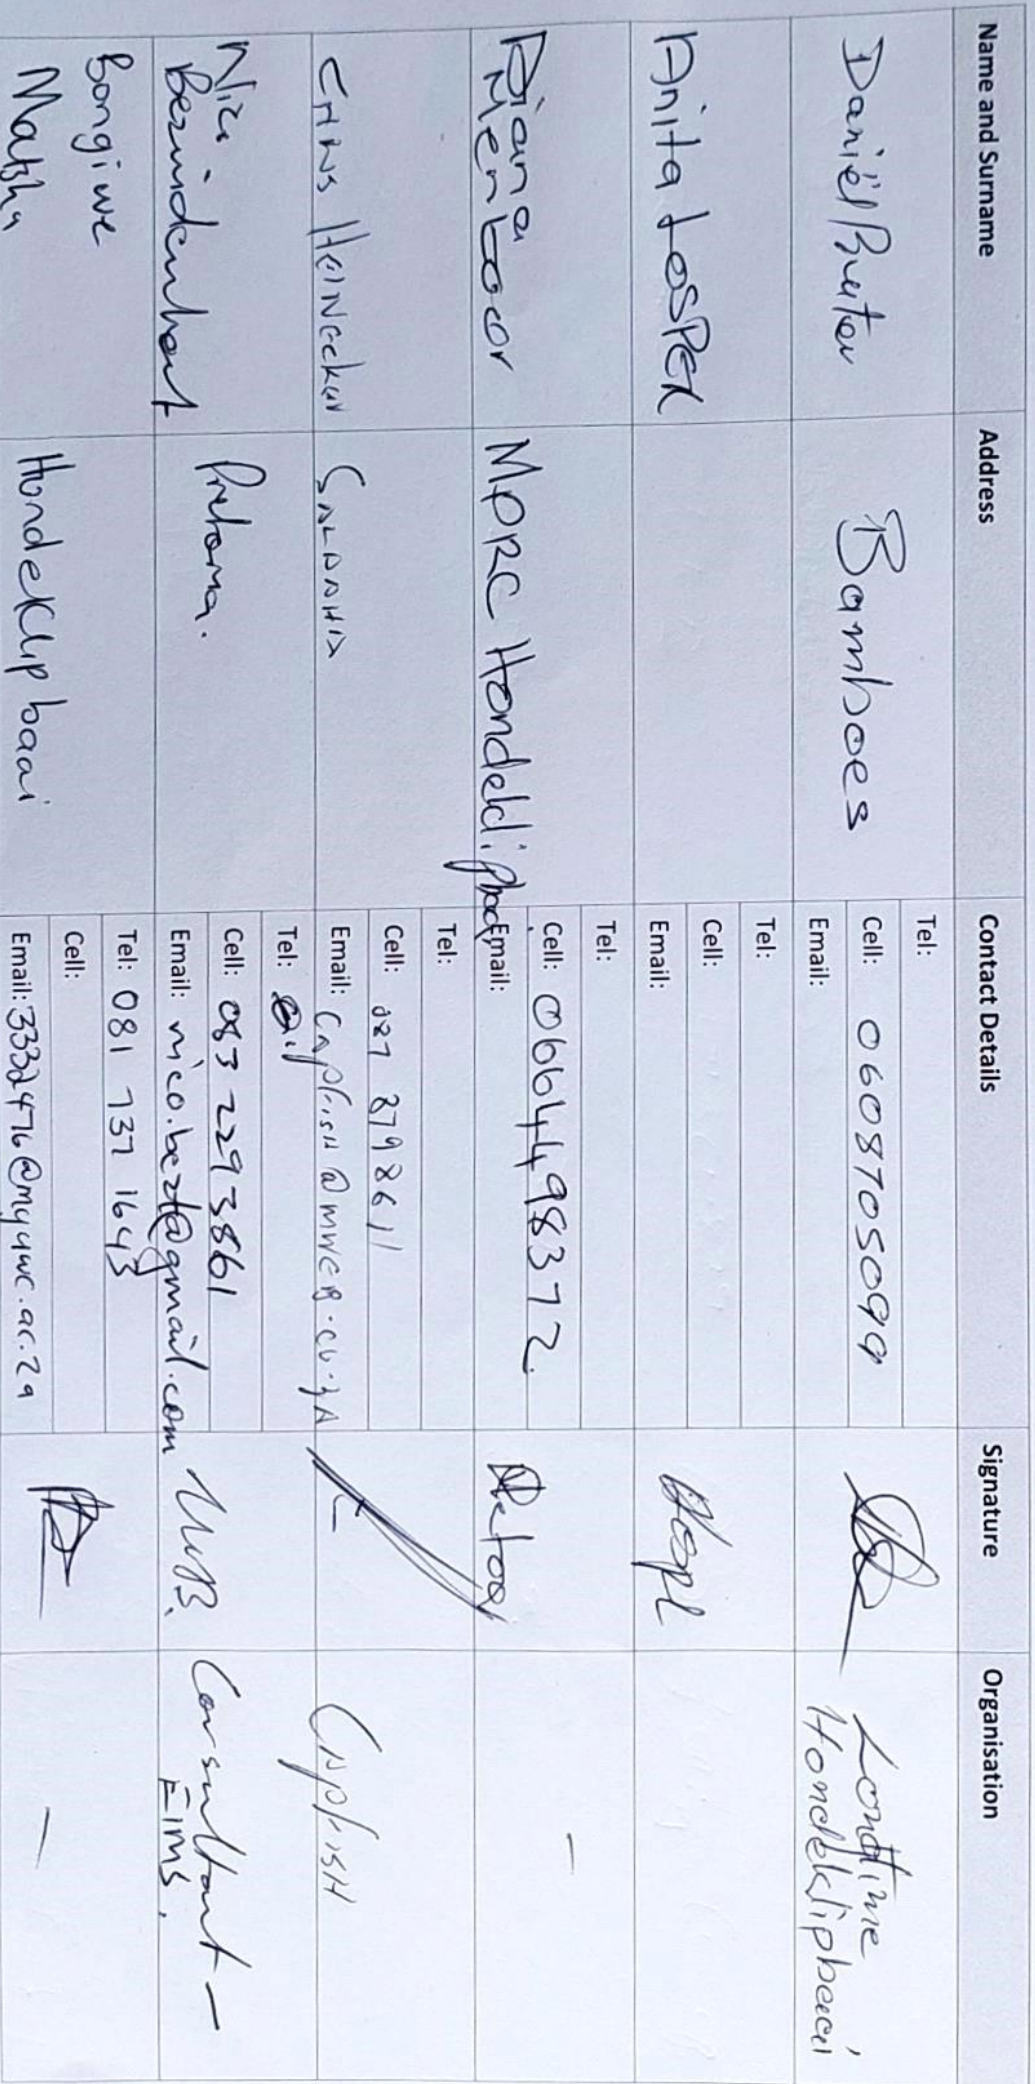 Name and Surname Address Contact Details Signature Organisation
Daniël Bamboes Tel:
Cell: 0608705099
Email:
Hondeklipbaai
Anita LOSPER Tel:
Cell:
Email:
Diana
Mentoor MPRC Hondeklipbaai Tel:
Cell: 0664498372
Email:
—
CHRIS HEINECKEN SALDANHA Tel:
Cell: 0278798611
Email: CAPFISH@MWEB.CO.ZA
CAPFISH
Nico
Bezuidenhout Pretoria. Tel:
Cell: 083 2293861
Email: nico.bezt@gmail.com
Consultant —
EIMS.
Bongiwe
Matsha Hondeklipbaai Tel: 081 737 1643
Cell:
Email: 3332476@myuwc.ac.za
—